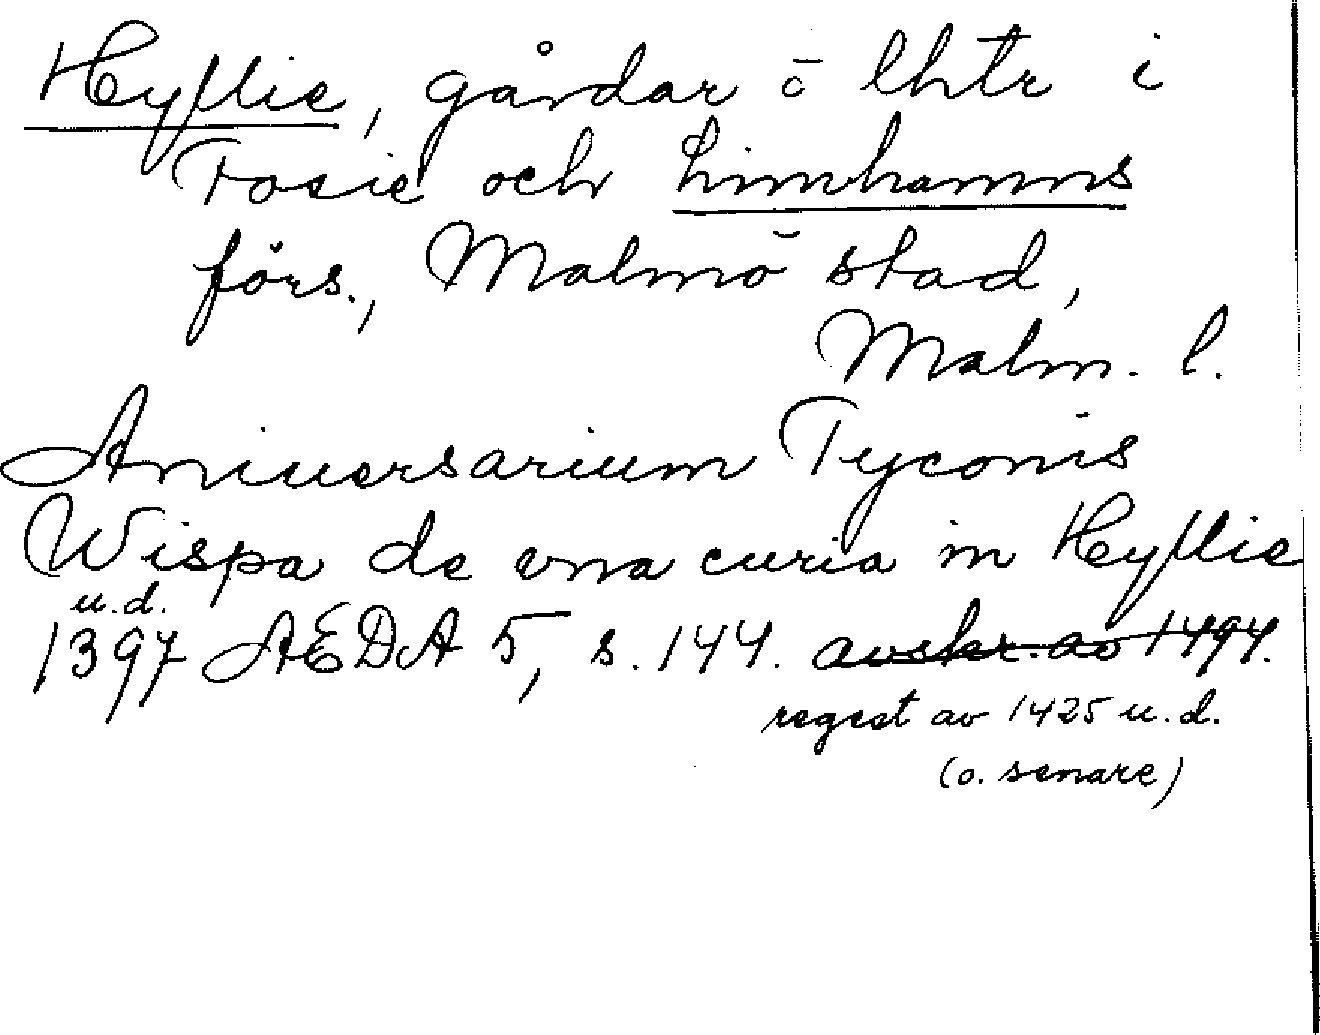 Hyllie, gårdar o lhtr i
Fosie och Limhamns
förs., Malmö stad,
Malm. l.
Aniuersarium Tyconis
Wispa de vna curia in Hyllie
u.d.
1397 AEDA 5, s. 144. avskr. av 1494.
regest av 1425 u.d.
(o. senare)